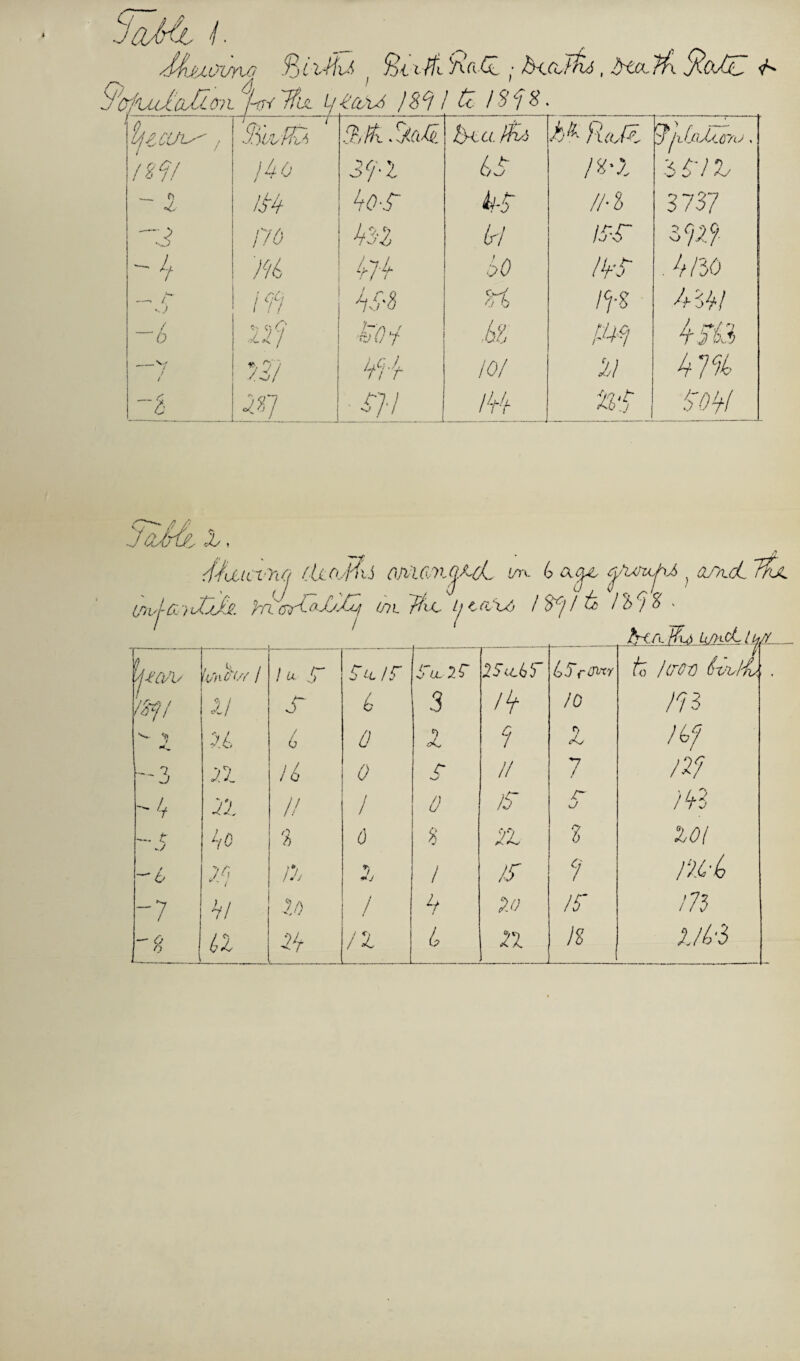 Table 1.
Shewing Births, Birth Rate; Deaths, Death Rate &
Population for the years 1891 to 1898.
Years, Births Bth. Rate Deaths Dth Rate Pplation.
1891 140 39·2 65 18·2 3572
– 2 154 40·5 45 11·8 3737
– 3 170 43·2 61 15·5 3929
– 4 196 47·4 60 14·5 4130
– 5 199 45·8 86 19·8 4341
– 6 229 50·1 68 14·9 4563
– 7 231 49·4 101 21 4796
– 8 287 57·1 144 28·5 5041
Table 2.
Shewing deaths arranged in 6 age groups, and the
infantile mortality in the years 1891 to 1898.
Deaths under 1 yr
Year under 1 1 u 5 5 u 15 5 u 25 25 u 65 65 r over to 1000 births.
1891 21 5 6 3 14 10 193
– 2 26 6 0 2 9 2 169
– 3 22 16 0 5 11 7 129
– 4 22 11 1 0 15 5 143
– 5 40 8 0 8 22 8 201
– 6 29 12 2 1 15 9 126·6
– 7 41 20 1 4 20 15 173
– 8 62 24 12 6 22 18 216·3